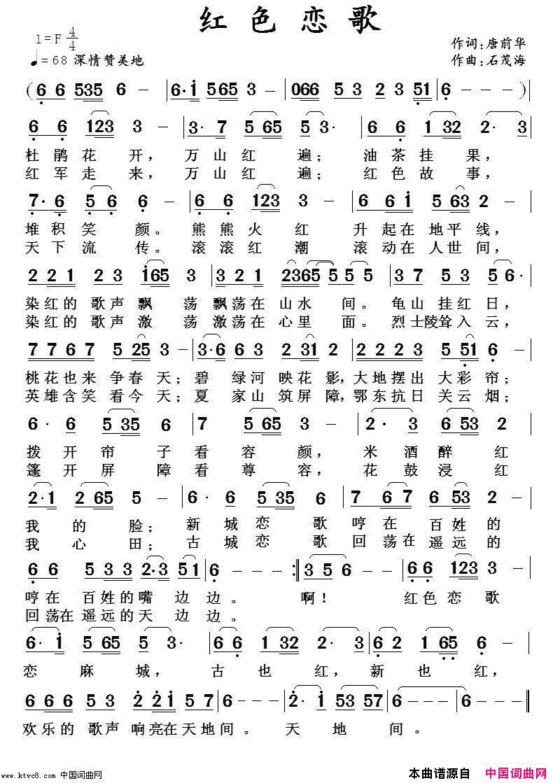 红 色 恋 歌
1=F 4/4
♩=68 深情赞美地
作词：唐前华
作曲：石茂海
(6 6 535 6 - | 6·i 565 3 - | 066 53 23 51 | 6 - - - )
6 6 123 3 - | 3· 7 5 65 3 - | 6 6 1 32 2· 3
杜 鹃 花 开， 万 山 红 遍； 油 茶 挂 果，
红 军 走 来， 万 山 红 遍； 红 色 故 事，
7·6 5 6 6 - | 6 6 123 3 - | 6 6 i 5 63 2 -
堆 积 笑 颜。 熊 熊 火 红 升 起 在 地 平 线，
天 下 流 传。 滚 滚 红 潮 滚 动 在 人 世 间，
2 2 1 2 3 i65 3 | 3 2 1 2365 5 5 5 | 3 7 5 3 5 6·
染 红 的 歌 声 飘 荡 飘 荡 在 山 水 间。 龟 山 挂 红 日，
染 红 的 歌 声 激 荡 激 荡 在 心 里 面。 烈 士 陵 耸 入 云，
7 7 6 7 5 25 3 - | 3·6 6 3 2 31 2 | 2 2 2 3 5 51 6
桃 花 也 来 争 春 天； 碧 绿 河 映 花 影， 大 地 摆 出 大 彩 帘；
英 雄 含 笑 看 今 天； 夏 家 山 筑 屏 障， 鄂 东 抗 日 关 云 烟；
6· 6 5 35 6 | 7 5 65 3 - | 2· 3 6 53 2
拨 开 帘 子 看 容 颜， 米 酒 醉 红
篷 开 屏 障 看 尊 容， 花 鼓 浸 红
2·1 2 65 5 - | 6 6 5 35 6 | 7 6 7 6 53 2
我 的 脸； 新 城 恋 歌 哼 在 百 姓 的
我 心 田； 古 城 恋 歌 回 荡 在 遥 远 的
6 6 5 3 3 2·3 51 | 6 - - - :| 3 5 6 - - | 6 6 6 123 3
哼 在 百 姓 的 嘴 边 边 。 啊！ 红 色 恋 歌
回 荡 在 遥 远 的 天 边 边 。
6· i 5 65 5 3· | 6 6 1 32 2 - | 6 2 1 65 6 -
恋 麻 城， 古 也 红， 新 也 红，
6 6 6 5 6 7 | 2 2i 5 7 | 6 - - - | 2· 1 53 57 | 6 - - - | 6 - - -
欢 乐 的 歌 声 响 亮 在 天 地 间 。 天 地 间 。
www.ktvc8.com 中国词曲网
本曲谱源自 中国词曲网